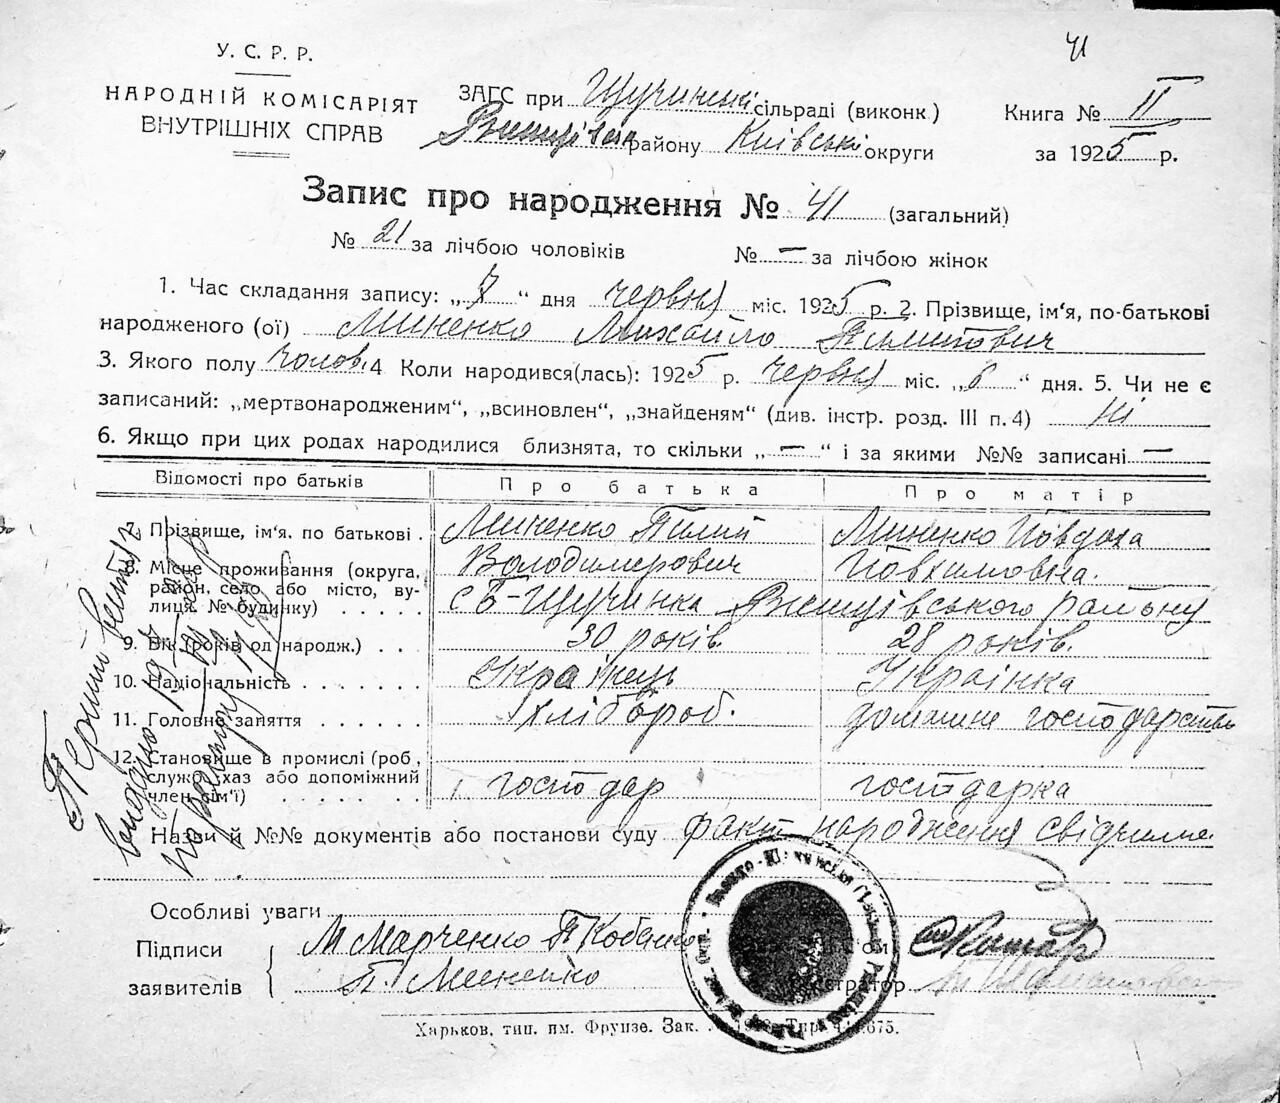 41
У. С. Р. Р.
НАРОДНІЙ КОМІСАРІЯТ
ВНУТРІШНІХ СПРАВ
ЗАГС при Щучинські сільраді (виконк.)
району Київські округи
Книга № II
за 1925 р.
Запис про народження № 41 (загальний)
№ 21 за лічбою чоловіків № — за лічбою жінок
1. Час складання запису: „7“ дня червня міс. 1925 р. 2. Прізвище, ім‘я, по-батькові
народженого (ої) Миненко Михайло Пилипович
3. Якого полу чолов. 4 Коли народився(лась): 1925 р. червня міс. „6“ дня. 5. Чи не є
записаний: „мертвонародженим“, „всиновлен“, „знайденям“ (див. інстр. розд. III п. 4) Ні
6. Якщо при цих родах народилися близнята, то скільки „—“ і за якими №№ записані —
Відомості про батьків Про батька Про матір
7. Прізвище, ім‘я. по батькові . Миненко Пилип Миненко Йовдоха
Володимерович Йовхимовна.
8. Місце проживання (округа,
район, село або місто, ву-
лиця. № будинку) с Б-Щучинка району
9. Вік (років од народж.) 30 років. 28 років.
10. Національність Українець Українка
11. Головне заняття хлібороб. домашне господарство
12. Становище в промислі (роб.,
служб., хаз або допоміжний
член сім‘ї) господар господарка
Назви й №№ документів або постанови суду факт народження свідчиме
Особливі уваги
Підписи
заявителів
М Марченко П Кобанко
П. Миненко
Реєстратор
Харьков, тип. им. Фрунзе. Зак.